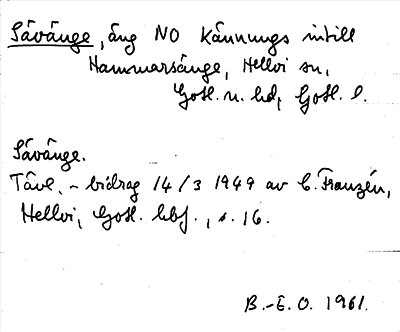 Sävänge, äng NO Kännungs intill
Hammarsänge, Hellvi sn,
Gotl. n. hd, Gotl. l.
Sävänge.
Tävl.-bidrag 14/3 1949 av C. Franzén,
Hellvi, Gotl. hbf., s. 16.
B.-E.O. 1961.